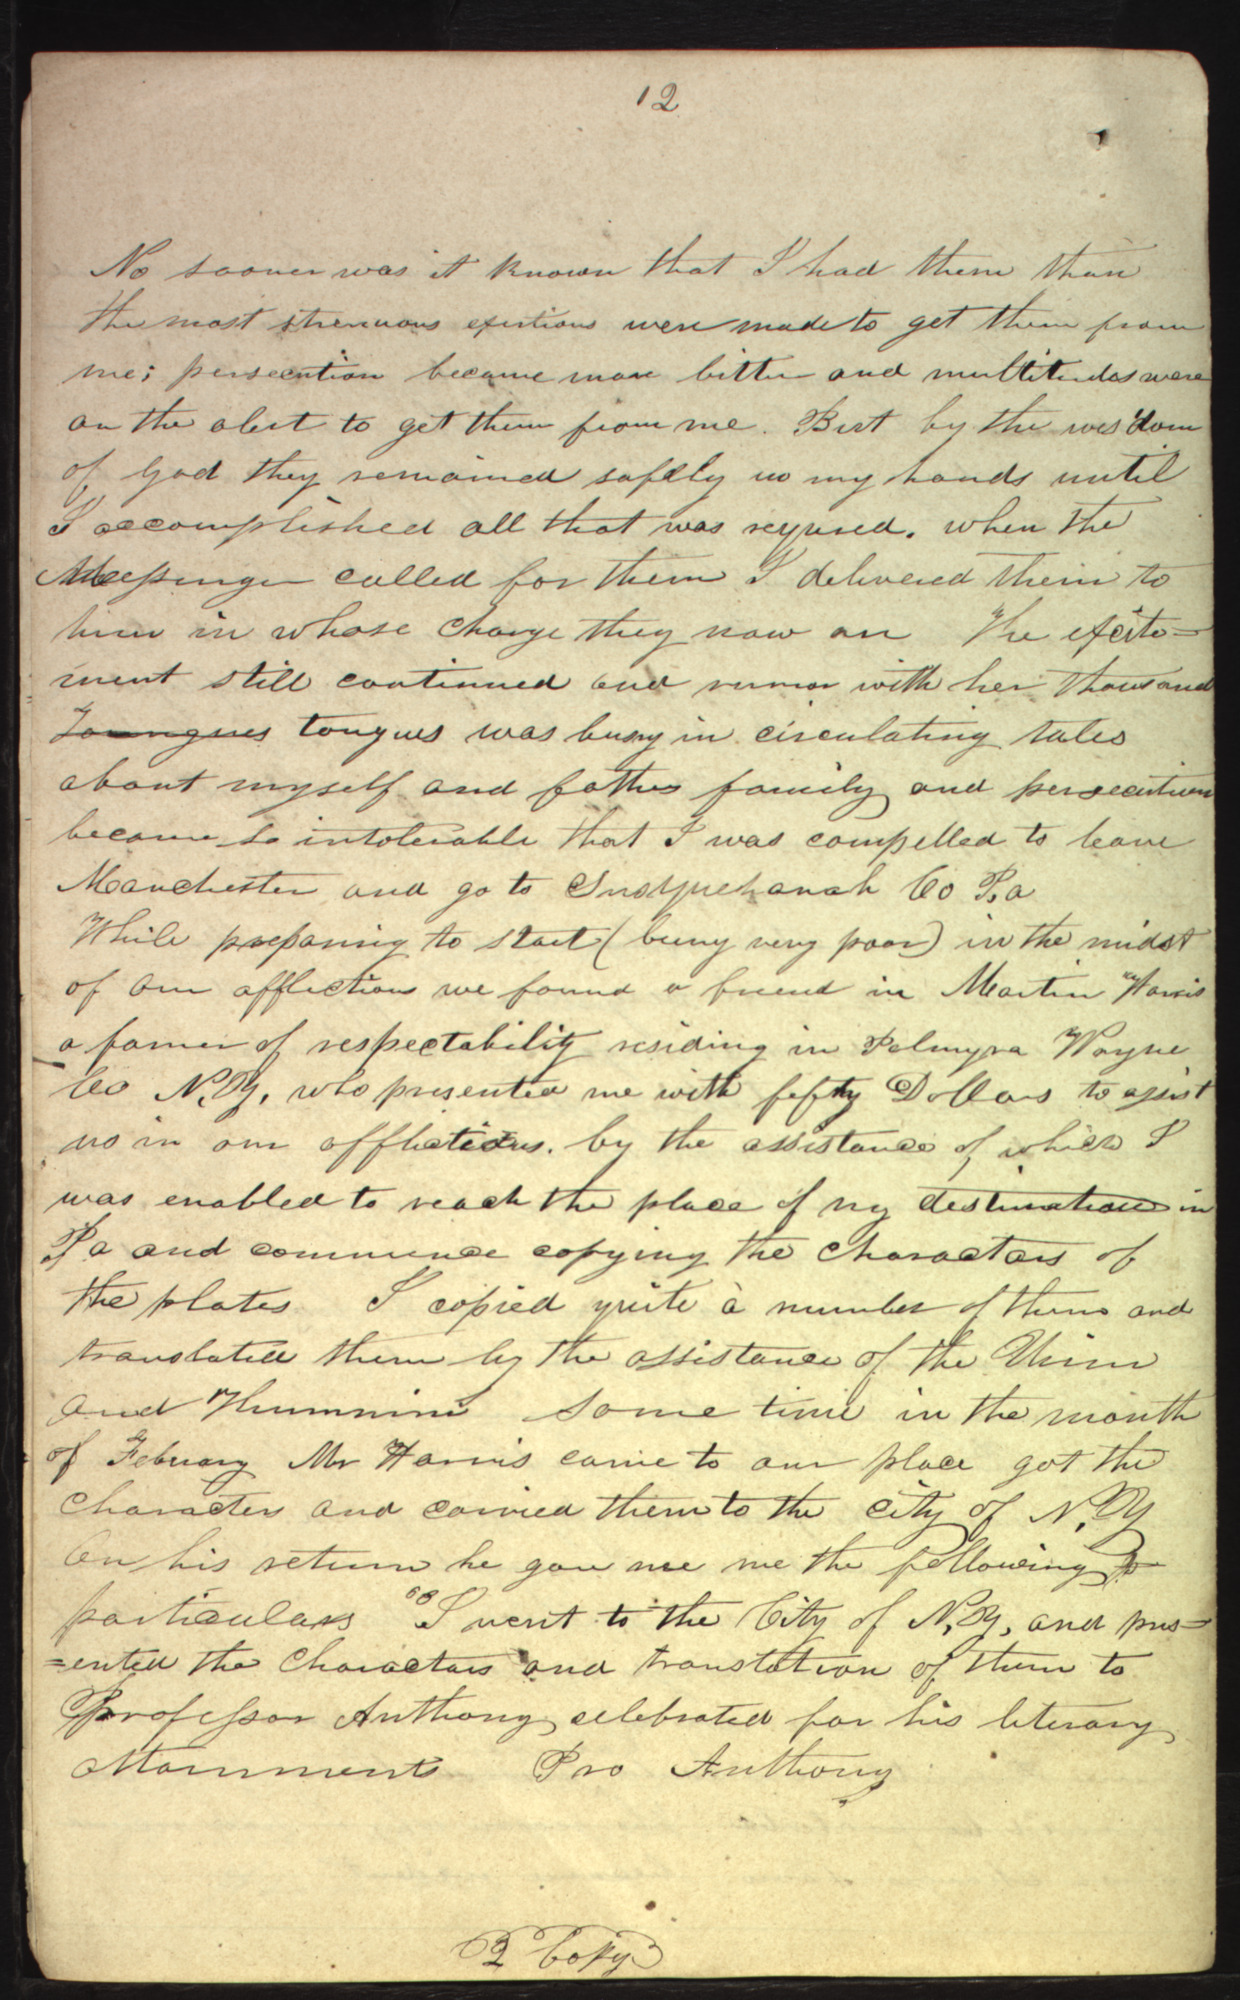 12
No sooner was it known that I had them than
the most strenuous exertions were made to get them from
me; persecution became more bitter and multitudes were
on the alert to get them from me. But by the wisdom
of God they remained safely in my hands until
I accomplished all that was requred. when the
Messenger called for them I delivered them to
him in whose charge they now are The excite=
ment still continued and rumor with her thousand
Toungues tongues was busy in circulating tales
about myself and fathers family and persecution
became so intolerable that I was compelled to leave
Manchester and go to Susquehanah Co Pa
While preparing to start (being very poor) in the midst
of our afflictions we found a friend in Martin Harris
a farmer of respectability residing in Palmyra Wayne
Co N.Y. who presented me with fifty Dollars to assist
us in our afflictions. by the assistance of which I
was enabled to reach the place of my destination in
Pa and commence copying the characters of
the plates I copied quite a number of them and
translated them by the assistance of the Urim
and Thummim some time in the month
of February Mr Harris came to our place got the
characters and carried them to the city of N.Y
On his return he gave me me the following
particulars "I went to the City of N.Y. and pres=
=ented the Characters and translation of them to
Professor Anthony celebrated for his literary
attainments Pro Anthony
2 Copy